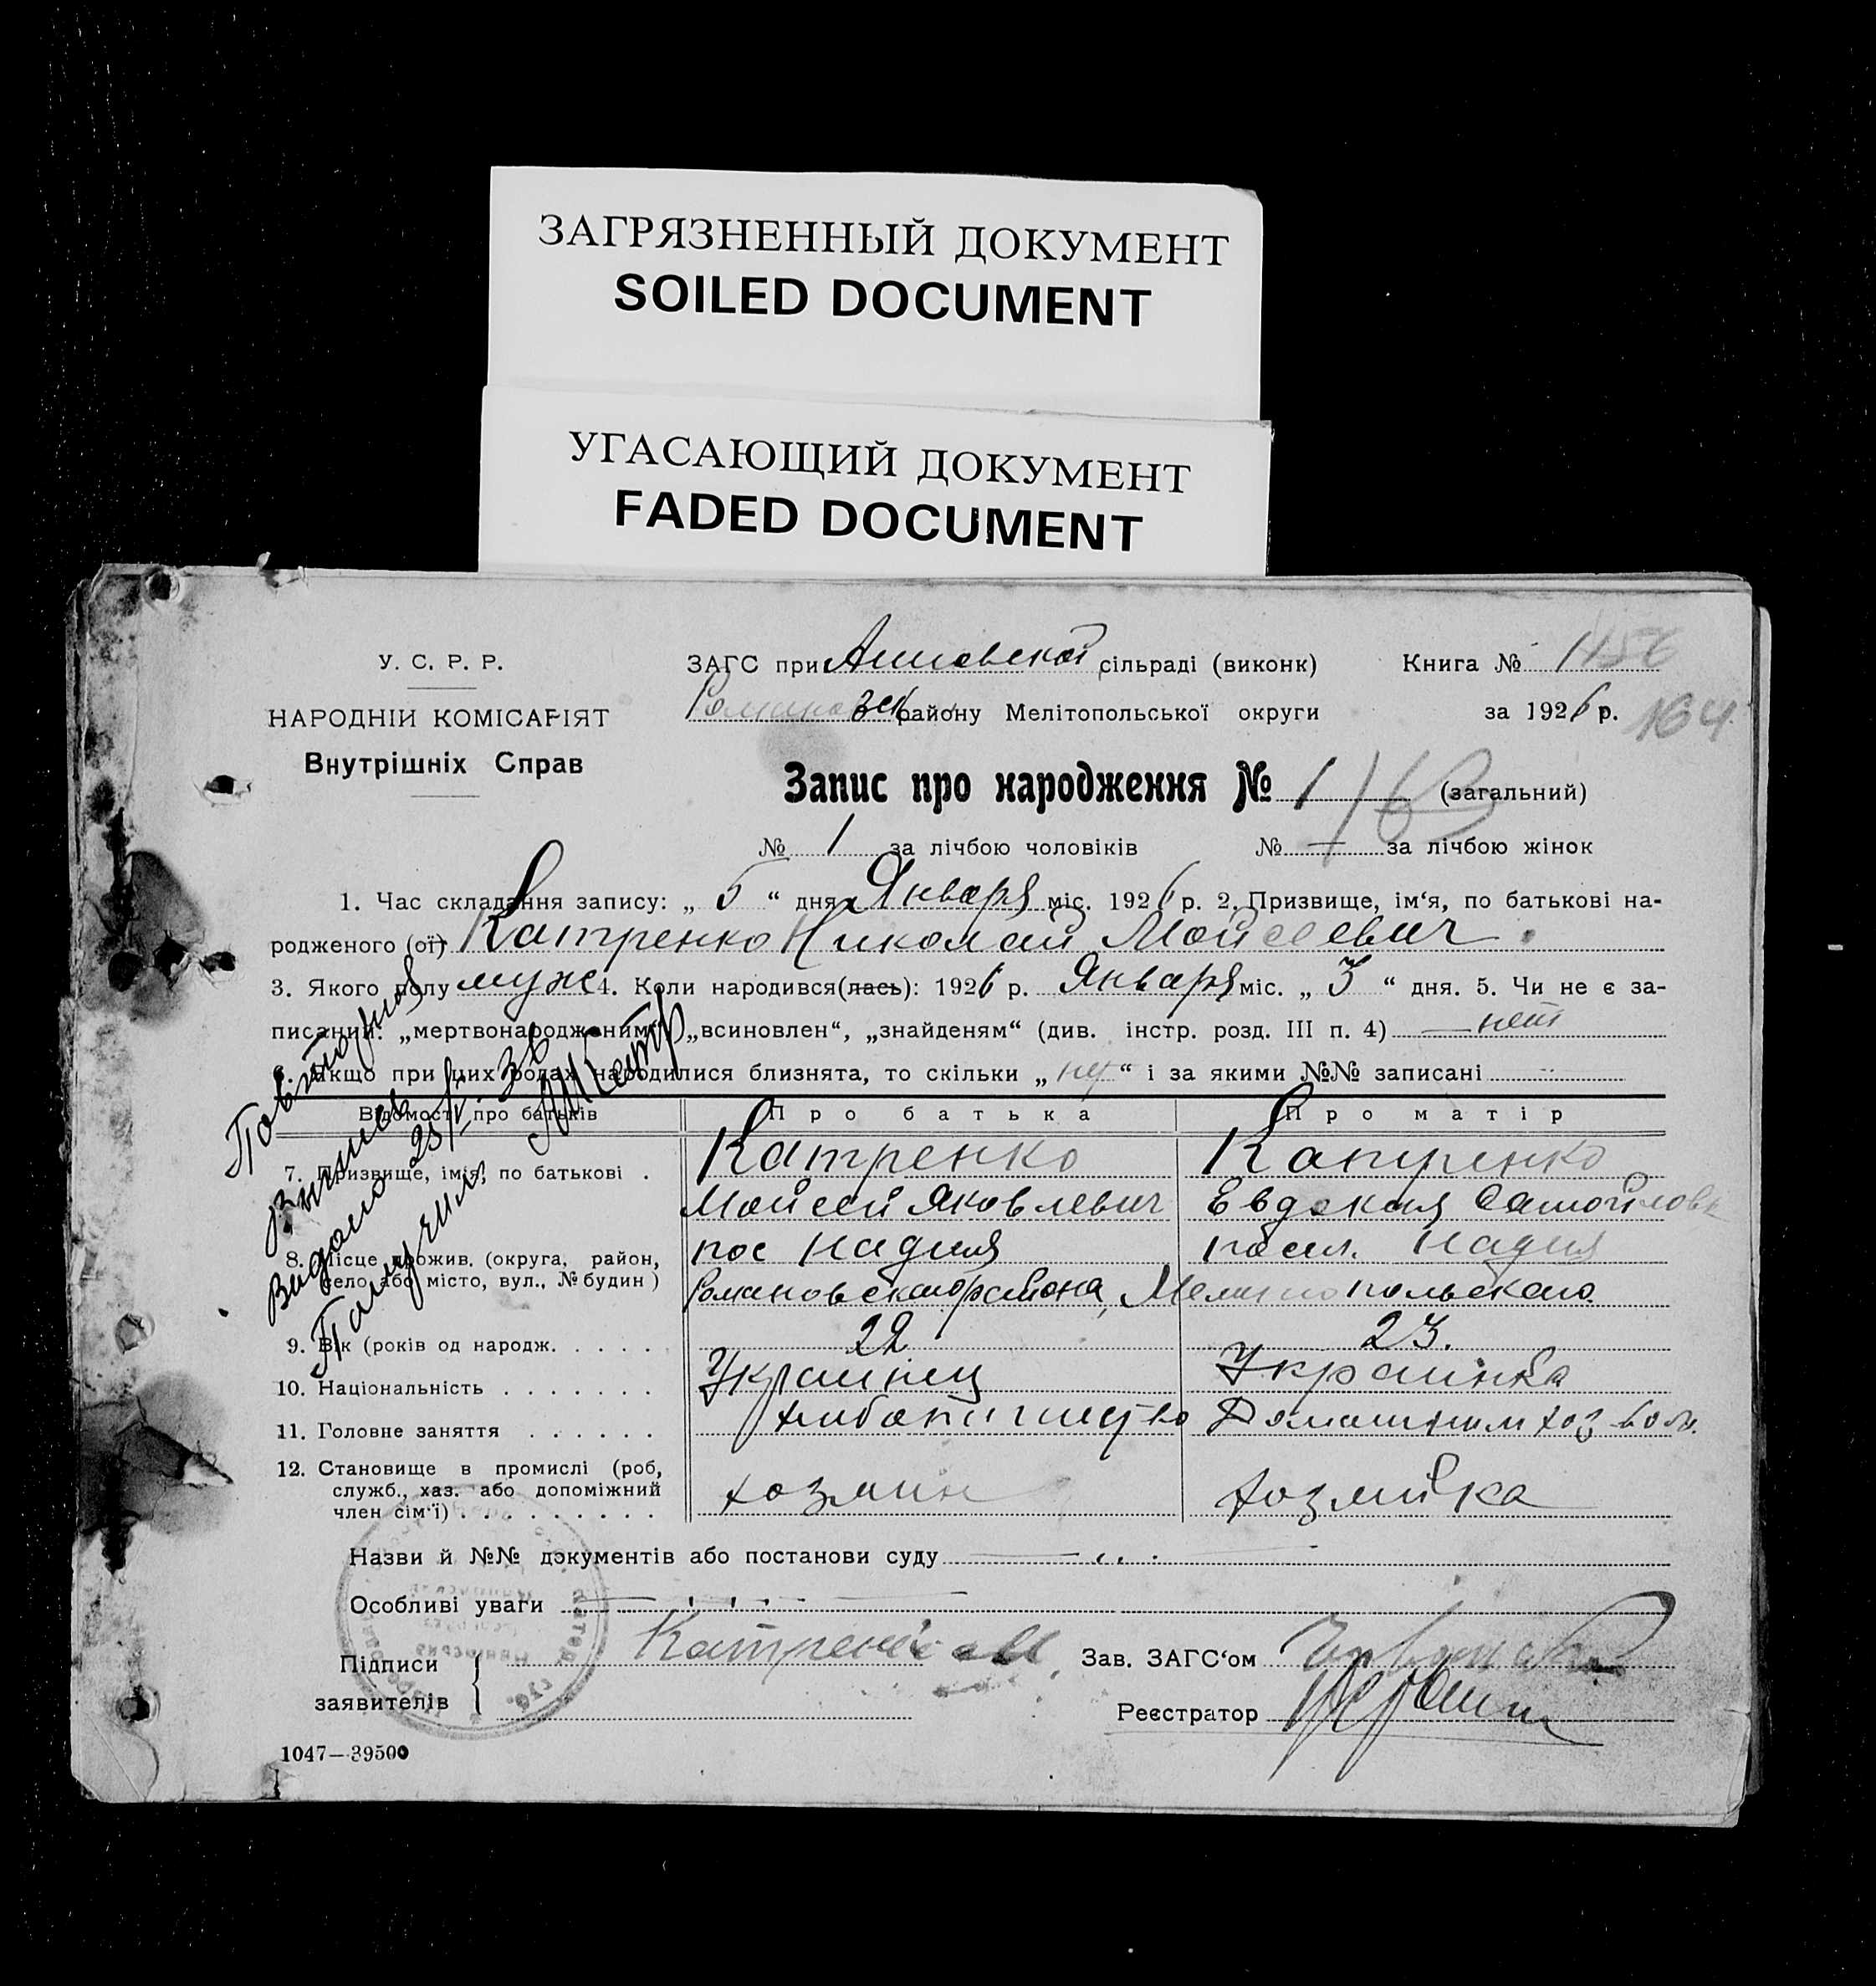 ЗАГРЯЗНЕННЫЙ ДОКУМЕНТ
SOILED DOCUMENT
УГАСАЮЩИЙ ДОКУМЕНТ
FADED DOCUMENT
У. С. Р. Р.
НАРОДНІЙ КОМІСАРІЯТ
Внутрішніх Справ
ЗАГС при сільраді (виконк)
району Мелітопольської округи
Книга №
за 1926 р. 164
Запис про народження № 1 (загальний)
№ 1 за лічбою чоловіків № — за лічбою жінок
1. Час складання запису: „ 5 “ дня Января міс. 1926 р. 2. Призвище, ім‘я, по батькові на-
родженого (ої) Катренко Николай Мойсеевич.
3. Якого полу муж 4. Коли народився(лась): 1926 р. Января міс. „ 3 “ дня. 5. Чи не є за-
писаний: „мертвонародженим“, „всиновлен“, „знайденям“ (див. інстр. розд. III п. 4) — нет
6. Якщо при цих родах народилися близнята, то скільки „ “ і за якими №№ записані
Відомості про батьків Про батька Про матір
7. Призвище, імія, по батькові . Катренко Катренко
Мойсей Яковлевич Евдокия Самойловн
8. Місце прожив. (округа, район, село або місто, вул., № будин) пос Надия посел. Надия
Романовскаго района, Мелитопольскаго.
9. Вік (років од народж. . . . . 22 23.
10. Національність . . . . . . . Украинец Украинка
11. Головне заняття . . . . . . хлебопашество Домашним
12. Становище в промислі (роб, служб., хаз. або допоміжний член сім‘ї) . . . . . . . . . хозяин хозяйка
Назви й №№ документів або постанови суду
Особливі уваги
Підписи заявителів Катренко М.
Зав. ЗАГС‘ом
Реєстратор
1047—39500
Повторной
Видано
Получил